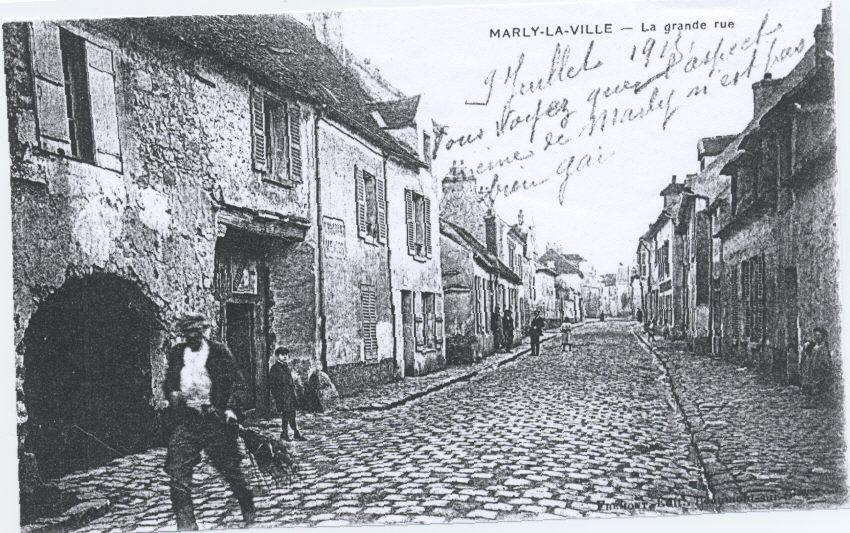 MARLY-LA-VILLE — La grande rue
9 Juillet 191
Vous voyez que l'aspect
de Marly n'est pas
bien gai